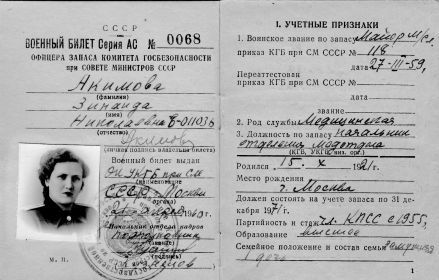 СССР
ВОЕННЫЙ БИЛЕТ Серия АС № 0068
ОФИЦЕРА ЗАПАСА КОМИТЕТА ГОСБЕЗОПАСНОСТИ
при СОВЕТЕ МИНИСТРОВ СССР
Акимова
(фамилия)
Зинаида
(имя)
Николаевна
(отчество)
(личная подпись владельца билета)
Военный билет выдан
КГБ при СМ
СССР г. Москвы
Начальник отдела кадров
подполковник
М. П.
I. УЧЕТНЫЕ ПРИЗНАКИ
1. Воинское звание по запасу Майор м/сл.
приказ КГБ при СМ СССР № 118
дата 27-III-59,
Переаттестован
приказ КГБ при СМ СССР №
дата
звание
2. Род службы Медицинская
3. Должность по запасу начальник
отделения медотдела
(КГБ, УКГБ,
Родился 15. X 1921г.
Место рождения
г. Москва
Должен состоять на учете запаса по 31
декабря 1971г.
Партийность и стаж чл. КПСС с 1955,
Образование высшее
Семейное положение и состав семьи замужняя
1